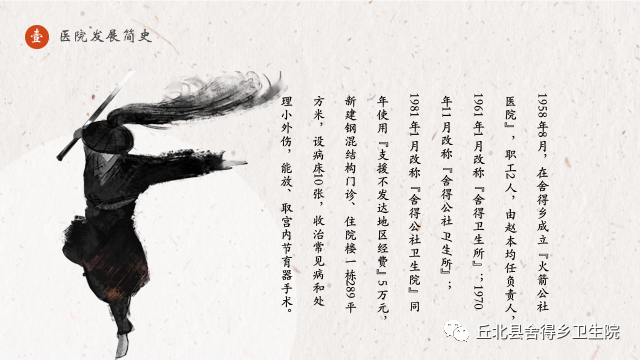 壹
医院发展简史
1958年8月，在舍得乡成立『火箭公社
医院』，职工2人，由赵本均任负责人，
1961年1月改称『舍得卫生所』；1970
年11月改称『舍得公社卫生所』；
1981年1月改称『舍得公社卫生院』同
年使用『支援不发达地区经费』5万元，
新建钢混结构门诊、住院楼一栋289平
方米，设病床10张，收治常见病和处
理小外伤，能放、取宫内节育器手术。
丘北县舍得乡卫生院